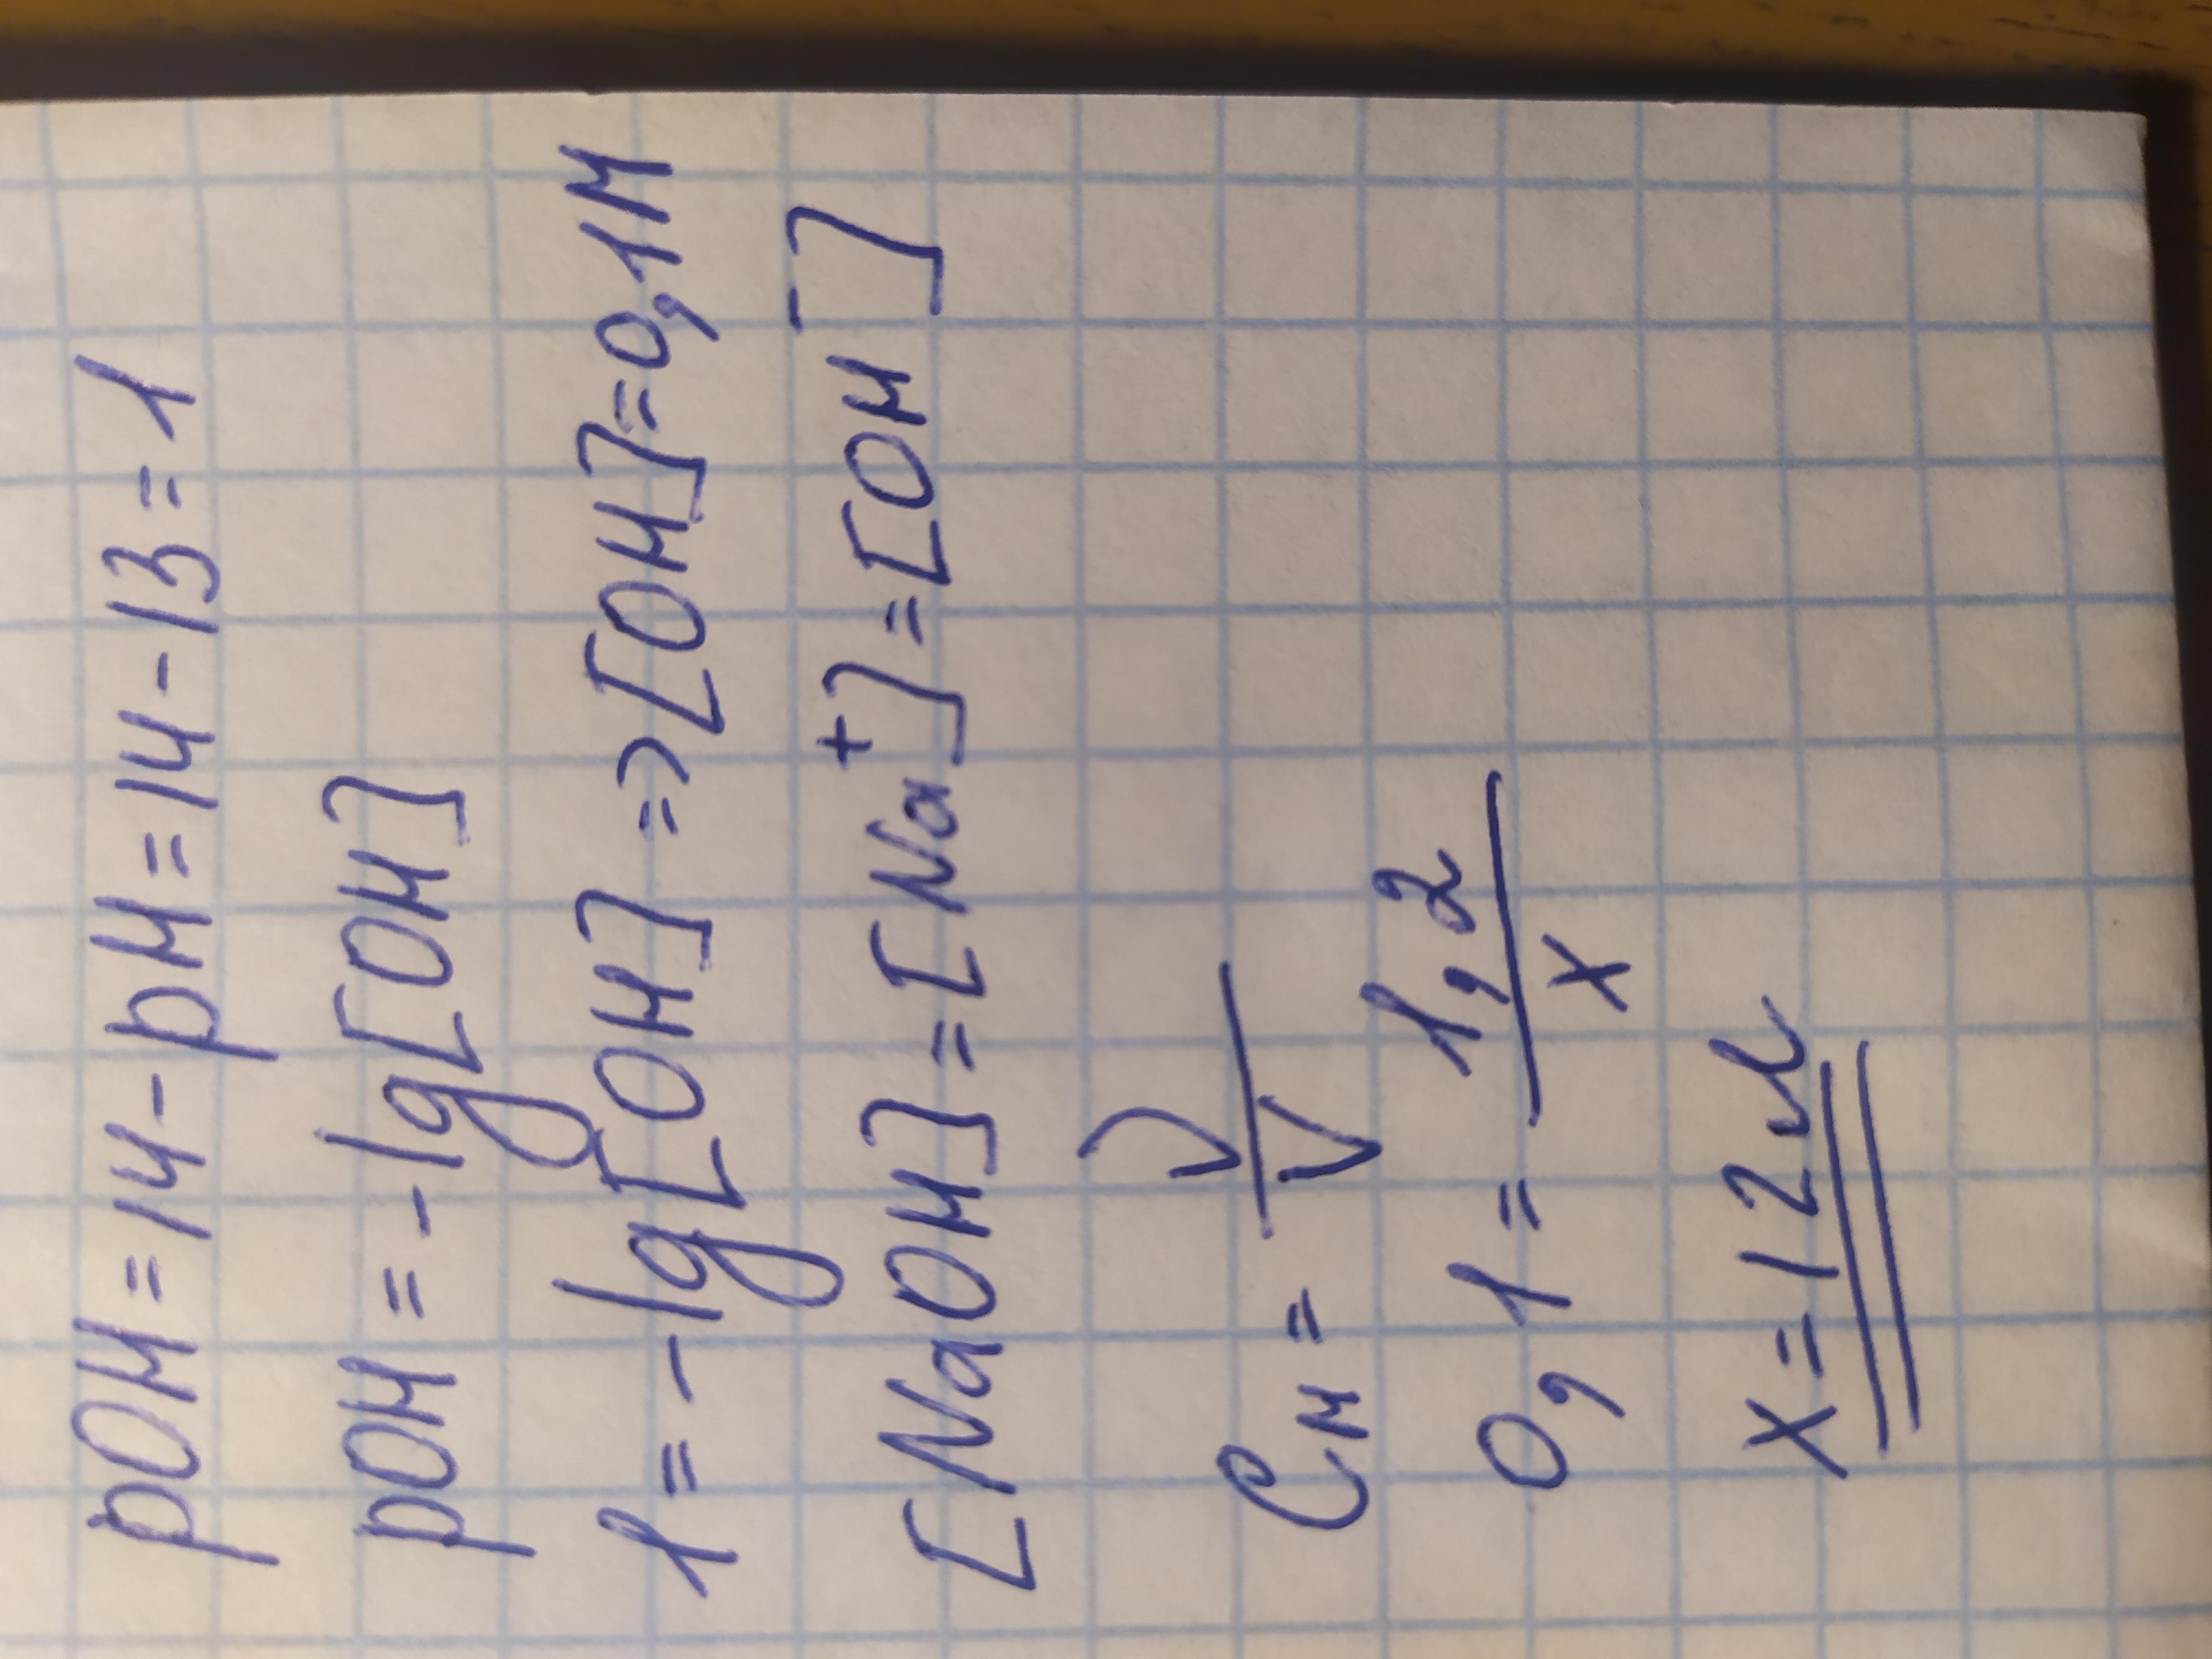 pOH = 14 - pH = 14 - 13 = 1
pOH = -lg[OH]
1 = -lg[OH] => [OH] = 0,1M
[NaOH] = [Na⁺] = [OH⁻]
Cм = ν/V
0,1 = 1,2/x
x = 12л